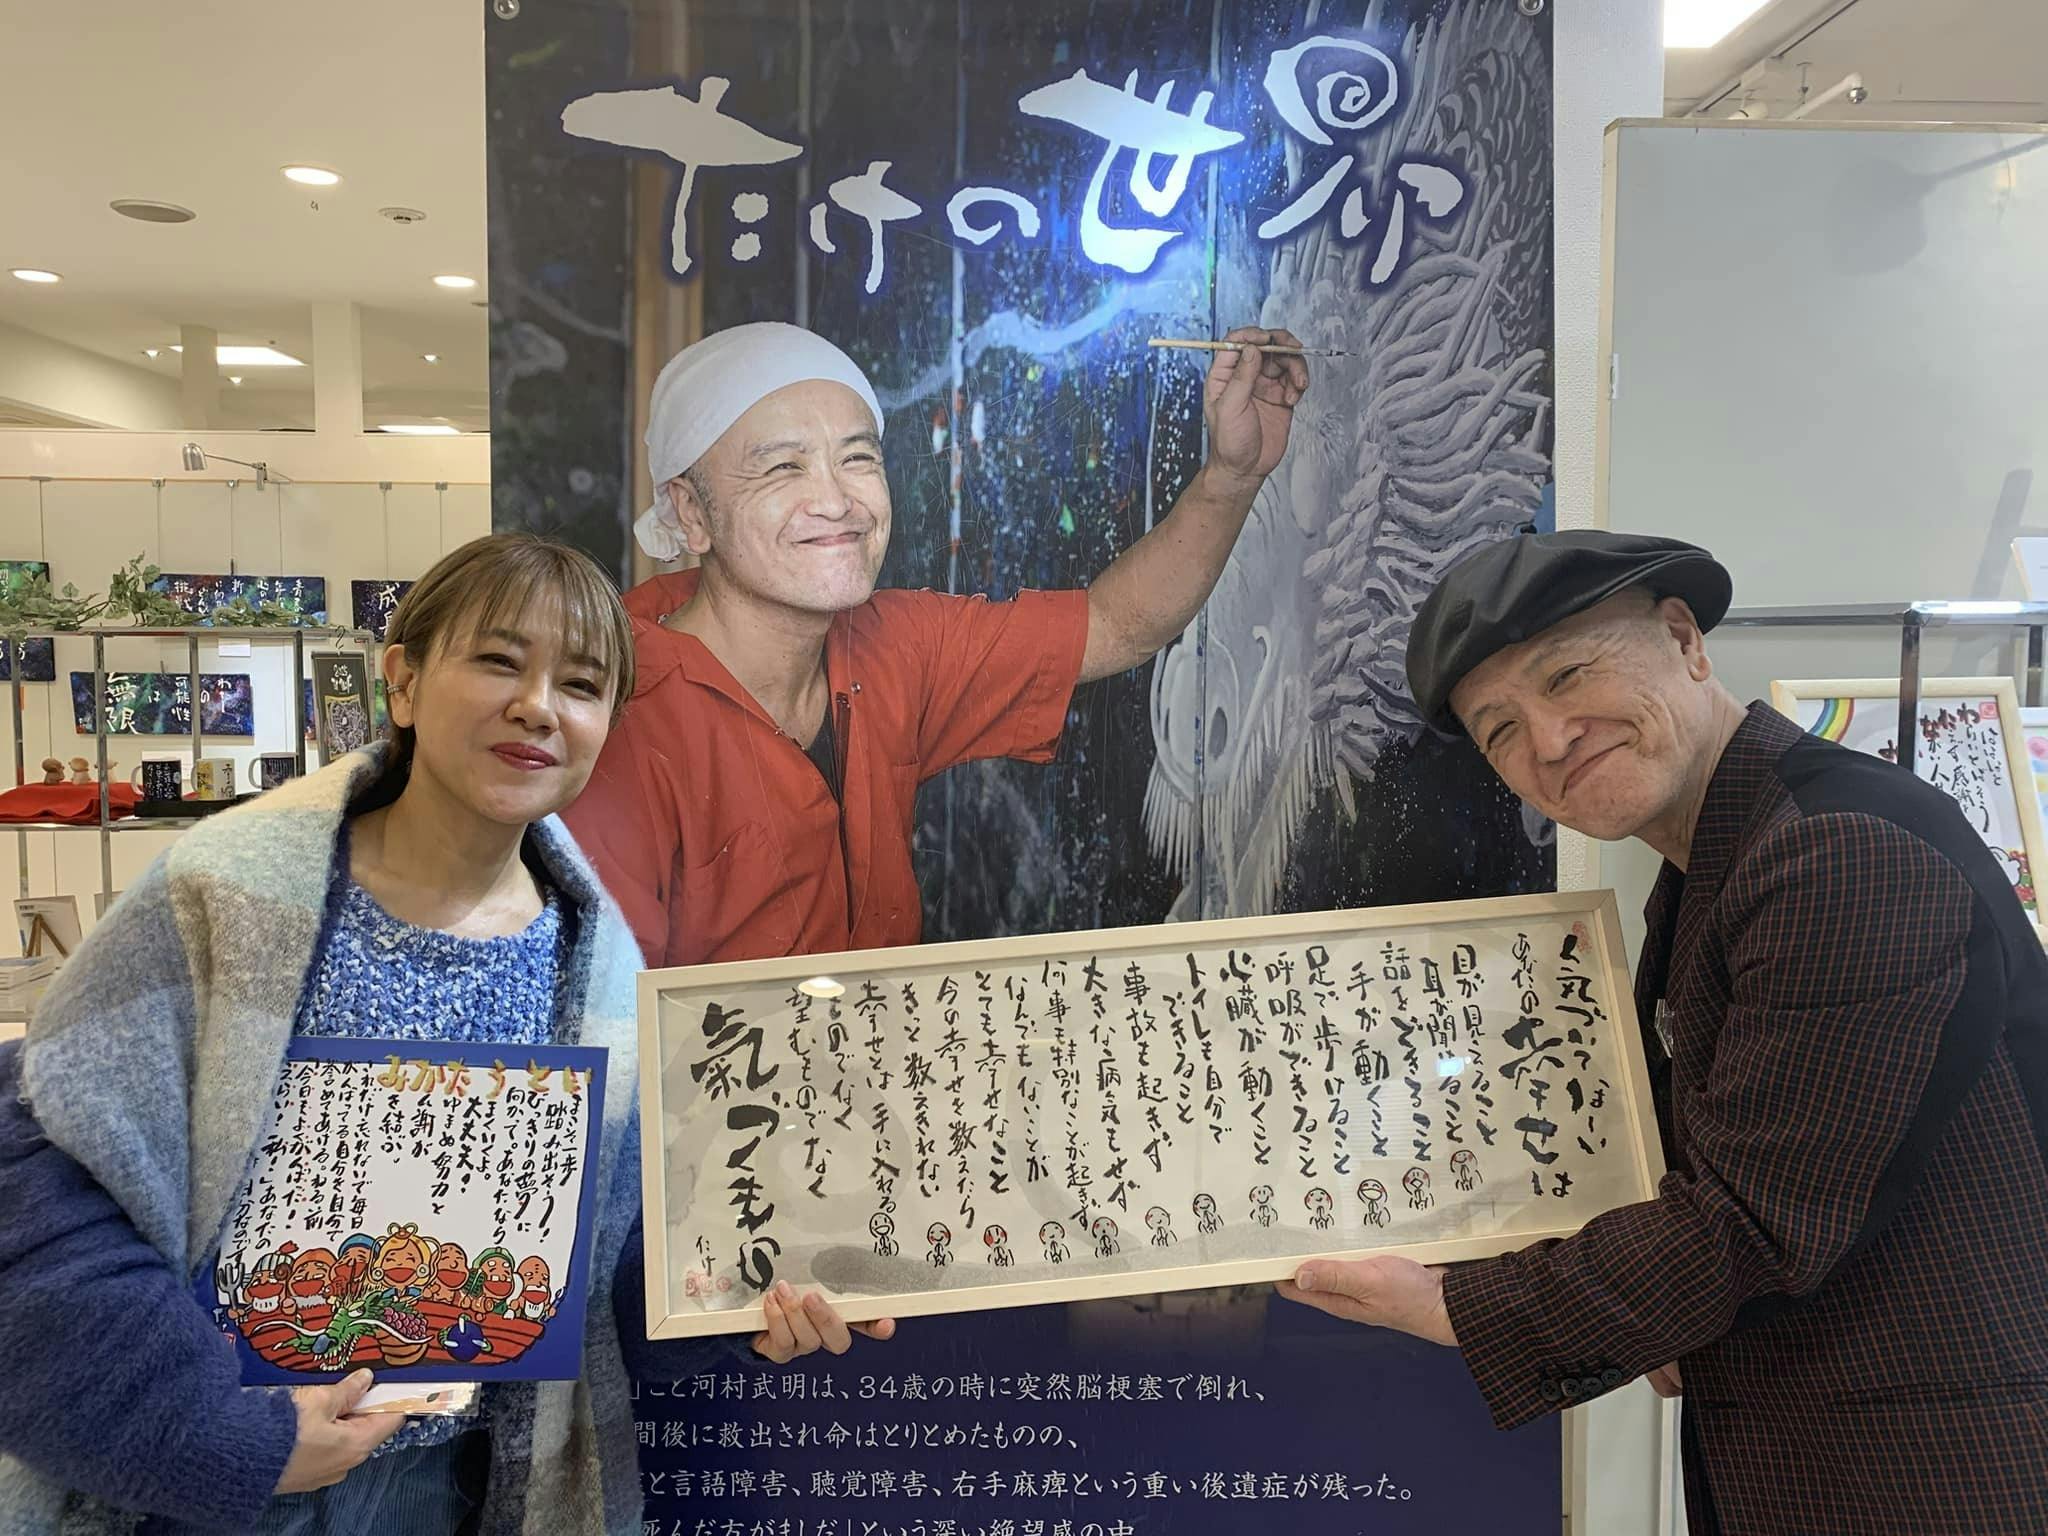 たけの世界
気づいてほしい
あなたの幸せは
目が見えること
耳が聞けること
話をできること
手が動くこと
足で歩けること
呼吸ができること
心臓が動くこと
トイレも自分で
できること
事故も起きず
大きな病気もせず
何事も特別なことが起きず
なんでもないことが
とても幸せなこと
今の幸せを数えたら
きっと数えきれない
幸せとは手に入れる
ものでなく
望むものでなく
氣づくもの
たけ
みかたうとい
まこそ一歩
踏み出そう!
びっきりの夢に
向かって。あなたなら
まくいくよ。
大丈夫!
ゆまぬ努力と
ん謝が
を結ぶ。
これだけ忘れないで毎日
がんばってる自分を自分で
誉めてあげる。ねる前
「今日もよくがんばった!
えらい!私!」あなたの
無限
は
可能性
の
成
」こと河村武明は、34歳の時に突然脳梗塞で倒れ、
間後に救出され命はとりとめたものの、
と言語障害、聴覚障害、右手麻痺という重い後遺症が残った。
死んだ方がましだ」という深い絶望感の中、